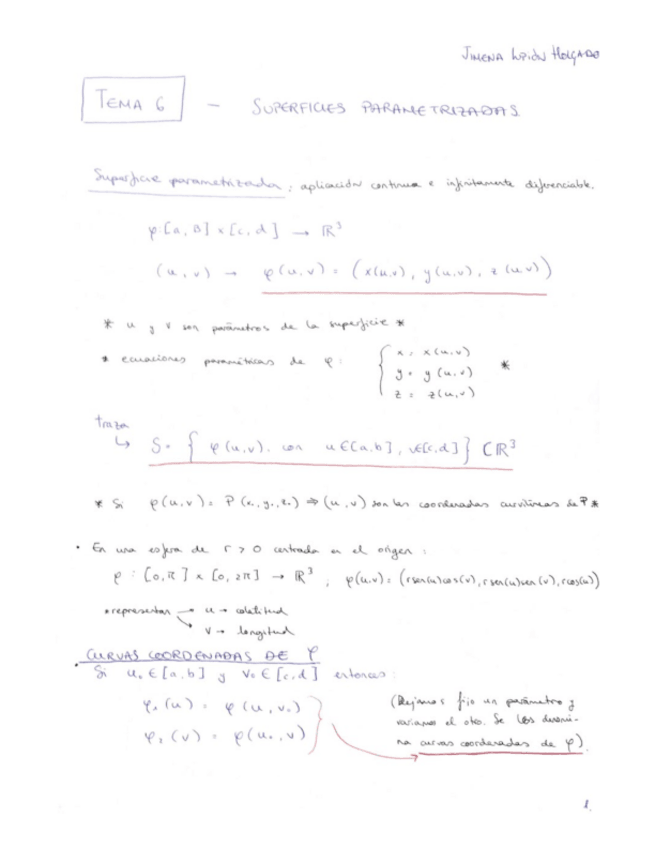 JIMENA LUPIÓN HOLGADO
TEMA 6 — SUPERFICIES PARAMETRIZADAS
Superficie parametrizada: aplicación continua e infinitamente diferenciable.
φ: [a, B] x [c, d] → ℝ³
(u, v) → φ(u,v) = (x(u,v), y(u,v), z(u,v))
* u y v son parámetros de la superficie *
* ecuaciones paramétricas de φ: { x = x(u,v)
y = y(u,v) *
z = z(u,v)
traza
↳ S = { φ(u,v). con u ∈ [a,b], v ∈ [c,d] } ⊂ ℝ³
* Si φ(u,v) = P(x₀, y₀, z₀) ⇒ (u, v) son las coordenadas curvilíneas de P *
• En una esfera de r > 0 centrada en el origen:
φ: [0, π] x [0, 2π] → ℝ³ ; φ(u,v) = (r sen(u) cos(v), r sen(u) sen(v), r cos(u))
* representan → u → colatitud
↘ v → longitud
• CURVAS COORDENADAS DE φ
Si u₀ ∈ [a,b] y v₀ ∈ [c,d] entonces:
φ₁(u) = φ(u, v₀)
φ₂(v) = φ(u₀, v)
(Dejamos fijo un parámetro y
variamos el otro. Se les denomi-
na curvas coordenadas de φ).
1.